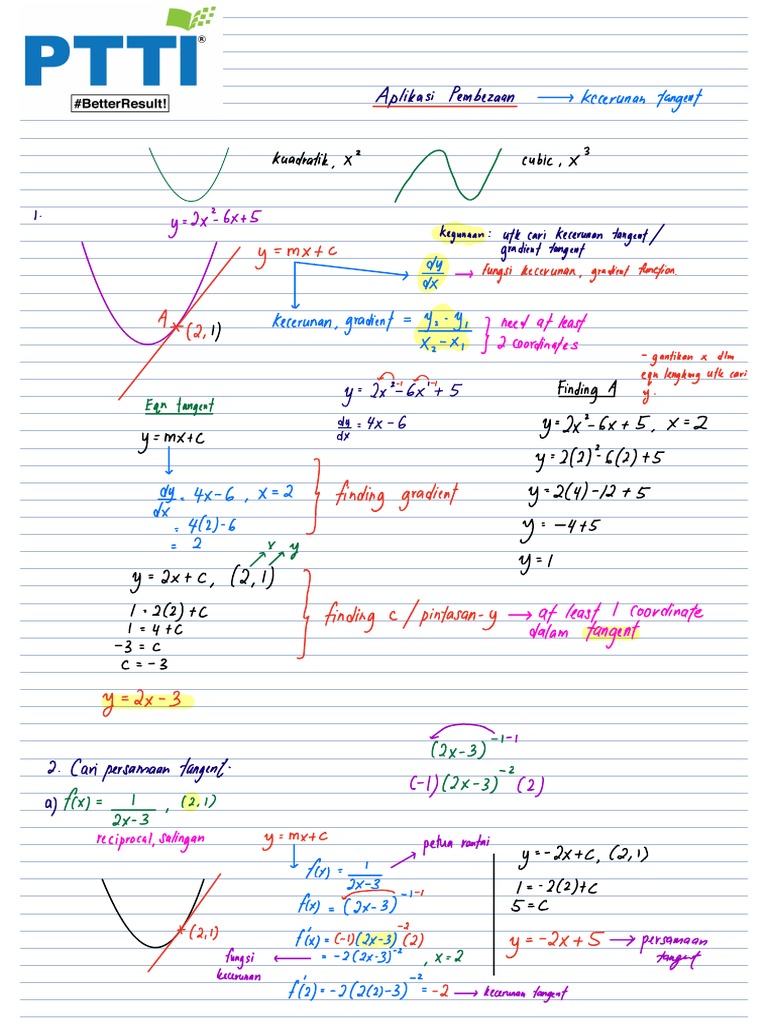 PTTI®
#BetterResult!
Aplikasi Pembezaan → kecerunan tangent
kuadratik, x²
cubic, x³
1.
y = 2x² - 6x + 5
y = mx + c
A
(2, 1)
kegunaan: utk cari kecerunan tangent /
gradient tangent
dy/dx → fungsi kecerunan, gradient function.
kecerunan, gradient = (y₂ - y₁)/(x₂ - x₁)
need at least
2 coordinates
Eqn tangent
y = mx + c
dy/dx = 4x - 6, x = 2
= 4(2) - 6
= 2
finding gradient
y = 2x²⁻¹ - 6x¹⁻¹ + 5
dy/dx = 4x - 6
Finding A
- gantikan x dlm
eqn lengkung utk cari
y.
y = 2x² - 6x + 5, x = 2
y = 2(2)² - 6(2) + 5
y = 2(4) - 12 + 5
y = -4 + 5
y = 1
x y
y = 2x + c, (2, 1)
1 = 2(2) + c
1 = 4 + c
-3 = c
c = -3
finding c / pintasan-y → at least 1 coordinate
dalam tangent
y = 2x - 3
2. Cari persamaan tangent.
a) f(x) = 1/(2x - 3), (2, 1)
reciprocal, salingan
(2x - 3)⁻¹⁻¹
(-1)(2x - 3)⁻² (2)
(2, 1)
y = mx + c
petua rantai
f(x) = 1/(2x - 3)
f(x) = (2x - 3)⁻¹⁻¹
f'(x) = (-1)(2x - 3)⁻² (2)
fungsi
kecerunan
= -2(2x - 3)⁻², x = 2
f'(2) = -2(2(2) - 3)⁻² = -2 → kecerunan tangent
y = -2x + c, (2, 1)
1 = -2(2) + c
5 = c
y = -2x + 5 → persamaan
tangent